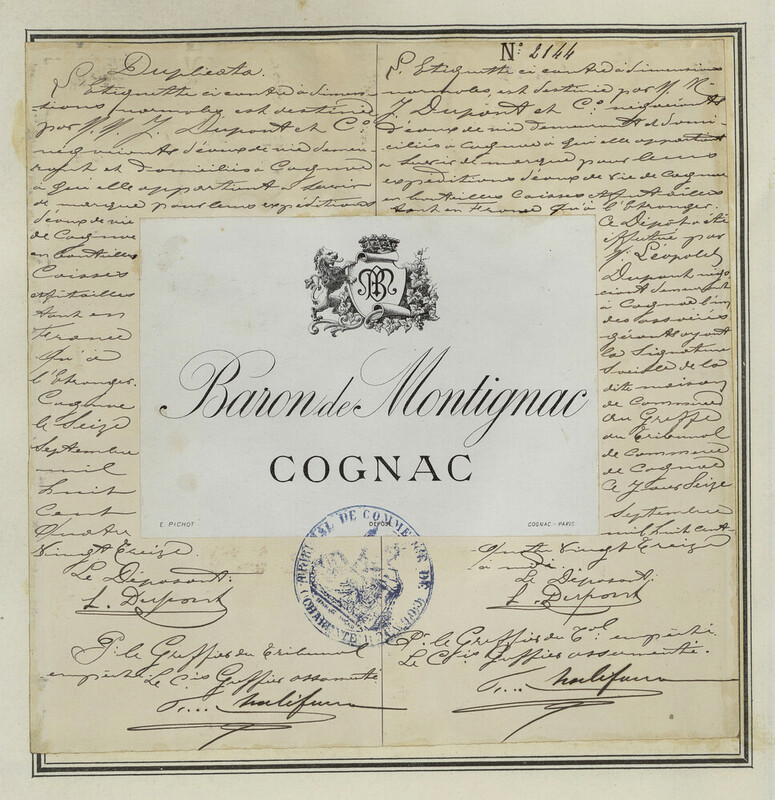 Duplicata.
L'Etiquette ci contre à dimen-
sions normales est destinée
par M.M. J. Dupont et Cº
négociants d'eaux de vie demeu-
rant et domiciliés à Cognac
à qui elle appartient à servir
de marque pour leurs expéditions
d'eaux de vie
de Cognac
en bouteilles
Caisses
et futailles
tant en
France
qu'à
l'Etranger.
Cognac
le Seize
Septembre
mil
huit
cent
Quatre
Vingt Treize.
Le Déposant:
L. Dupont
Pr. le Greffier du Tribunal
empêché Le Cis Greffier assermenté
Nº 2144
L'Etiquette ci contre à dimensions
normales, est destinée par M.M.
J. Dupont et Cº négociants
d'eaux de vie demeurant et domi-
ciliés à Cognac à qui elle appartient
à servir de marque pour leurs
expéditions d'eaux de vie de Cognac
en bouteilles Caisses et futailles
tant en France qu'à l'Etranger.
Ce Dépôt a été
effectué par
M. Léopold
Dupont négo-
ciant demeurant
à Cognac l'un
des associés
gérants ayant
la Signature
Sociale de la
dite maison
de Commerce
au Greffe
du Tribunal
de Commerce
de Cognac
ce Jour Seize
Septembre
mil huit cent
Quatre Vingt Treize
Le Déposant:
L. Dupont
Pr. le Greffier du Tal. empêché
Le Cis Greffier assermenté.
BM
Baron de Montignac
COGNAC
E. PICHOT
DÉPOSÉ
COGNAC - PARIS
TRIBUNAL DE COMMERCE DE COGNAC
CHARENTE